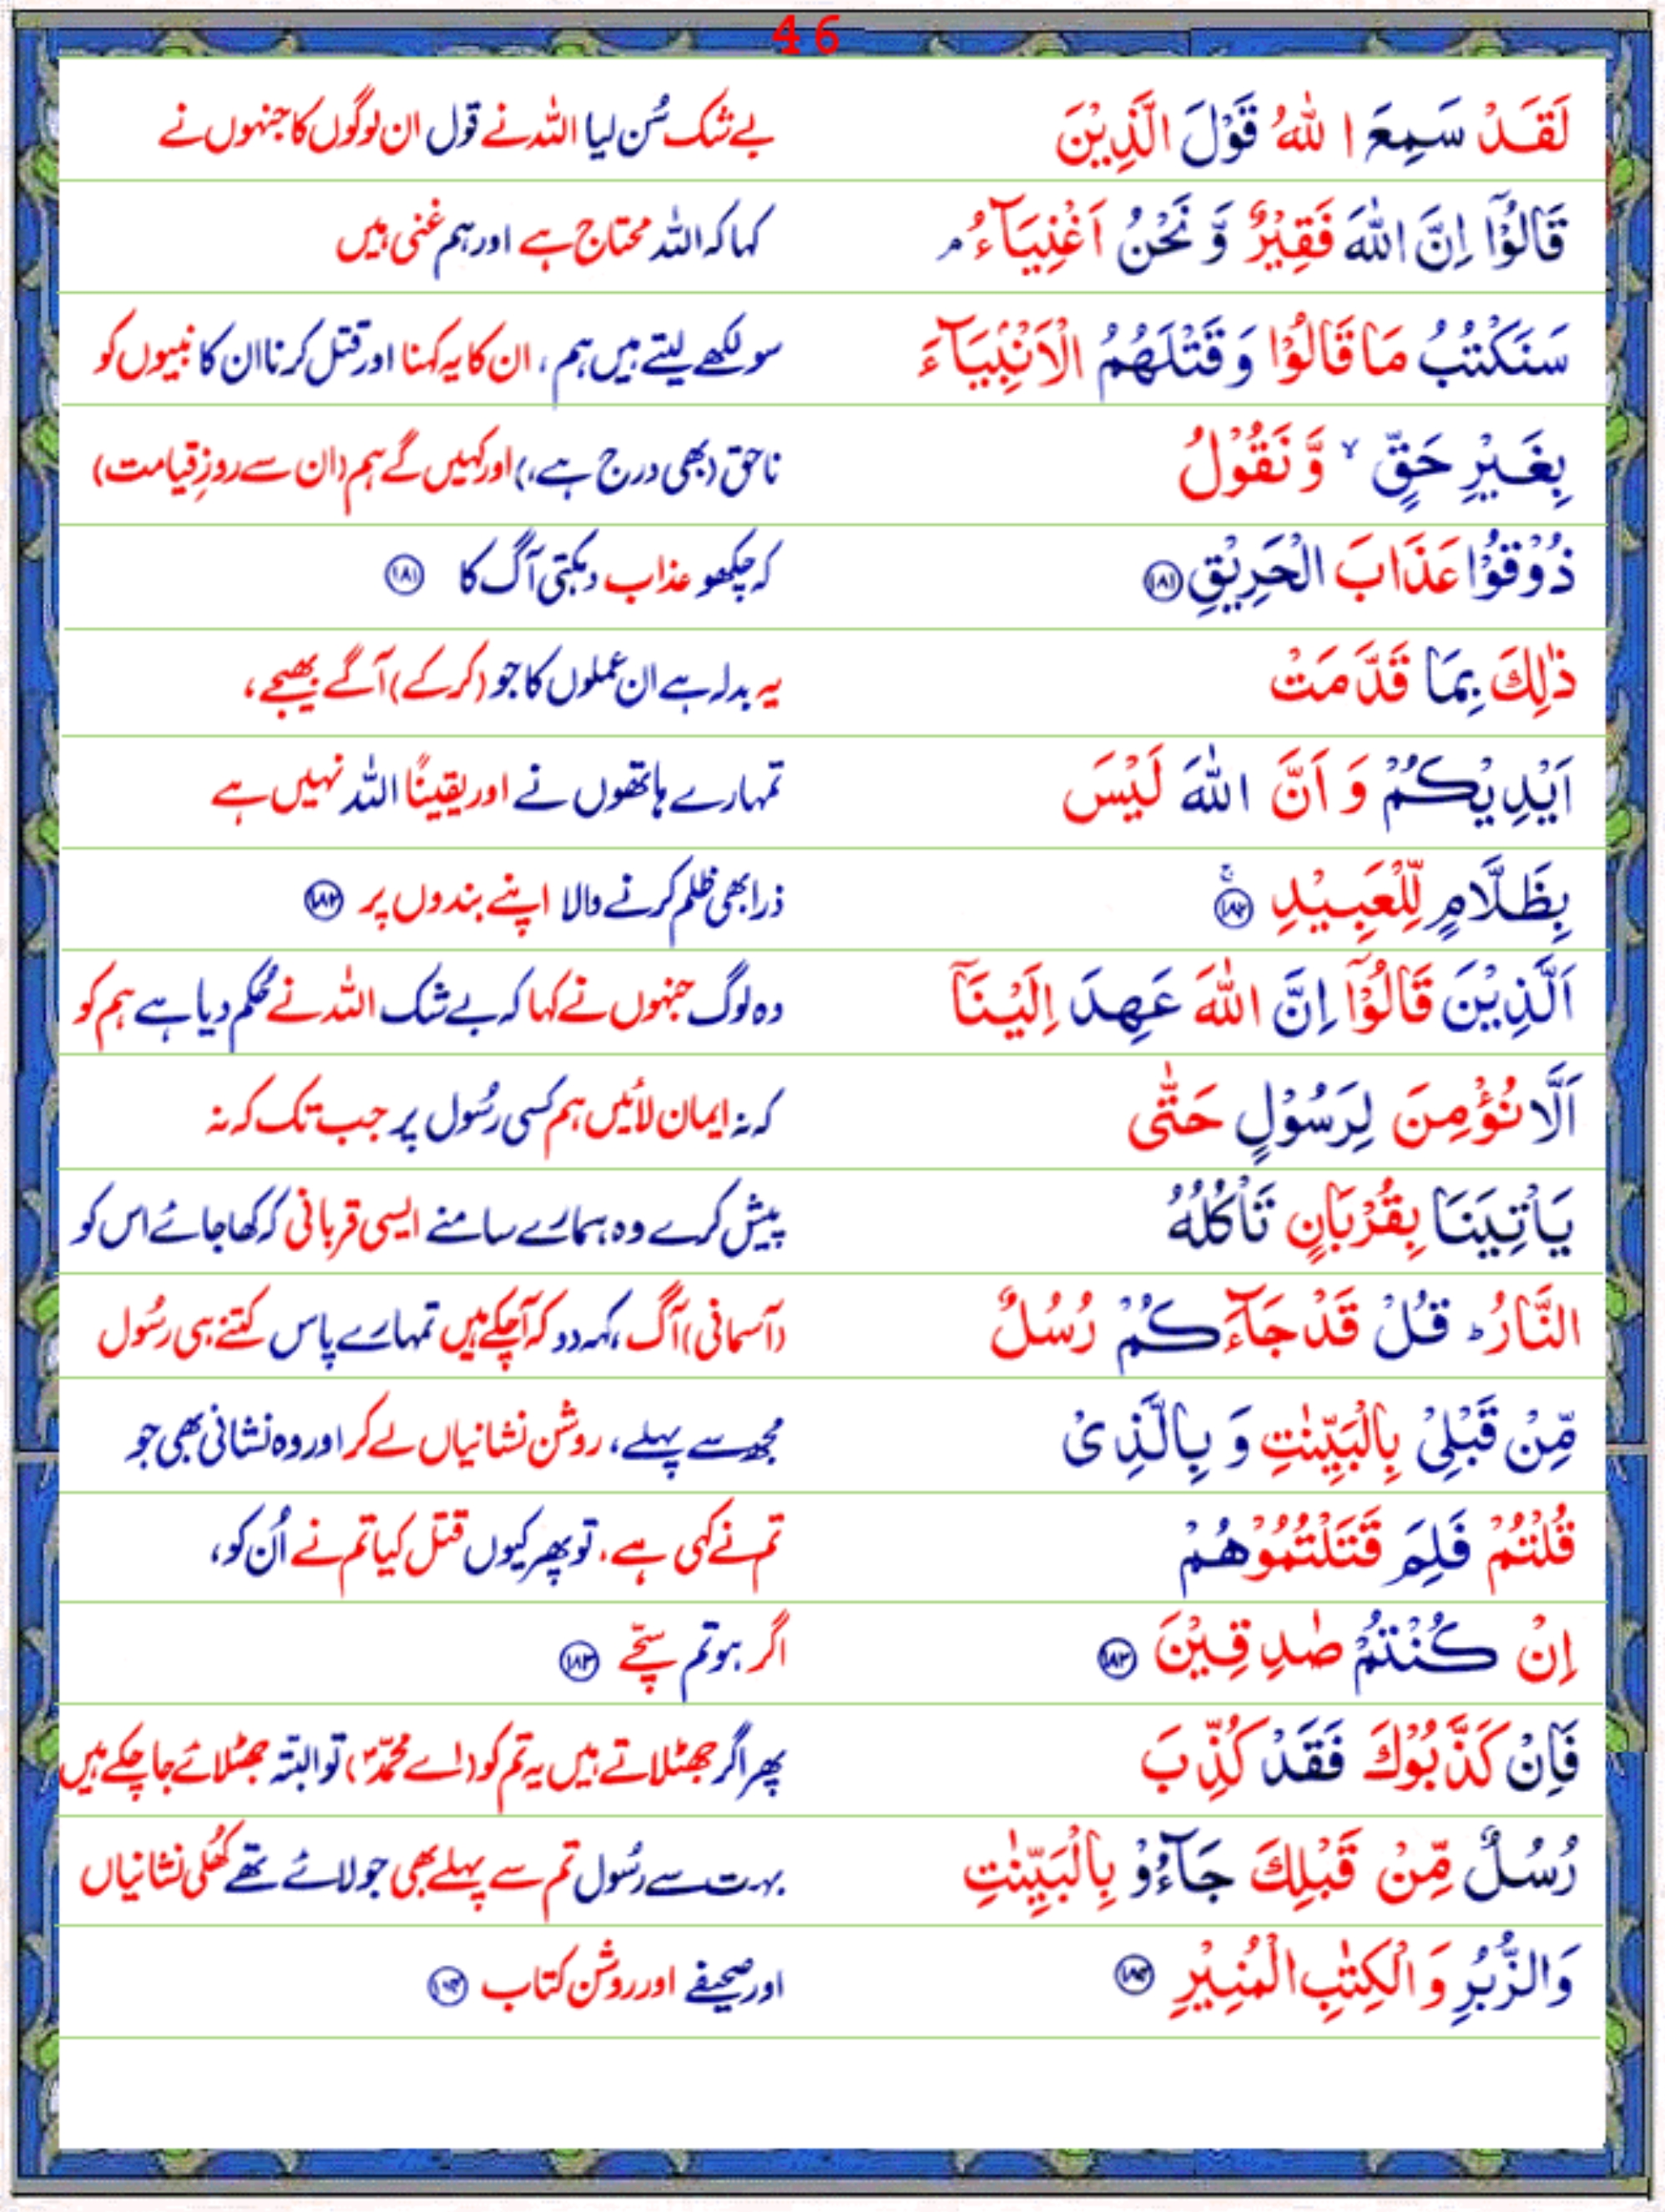 46
لَقَدْ سَمِعَ ا للّٰهُ قَوْلَ الَّذِيْنَ بے شک سُن لیا اللہ نے قول ان لوگوں کا جنہوں نے
قَالُوْٓا اِنَّ اللّٰهَ فَقِيْرٌ وَّ نَحْنُ اَغْنِيَآءُ ۘ کہا کہ اللہ محتاج ہے اور ہم غنی ہیں
سَنَكْتُبُ مَا قَالُوْا وَ قَتْلَهُمُ الْاَنْۢبِيَآءَ سو لکھے لیتے ہیں ہم، ان کا یہ کہنا اور قتل کرنا ان کا نبیوں کو
بِغَيْرِ حَقٍّ ۙ وَّ نَقُوْلُ ناحق (بھی درج ہے،) اور کہیں گے ہم (ان سے روزِ قیامت)
ذُوْقُوْا عَذَابَ الْحَرِيْقِ ۱۸۱ کہ چکھو عذاب دہکتی آگ کا ۱۸۱
ذٰلِكَ بِمَا قَدَّمَتْ یہ بدلہ ہے ان عملوں کا جو (کر کے) آگے بھیجے،
اَيْدِيْكُمْ وَ اَنَّ اللّٰهَ لَيْسَ تمہارے ہاتھوں نے اور یقیناً اللہ نہیں ہے
بِظَلَّامٍ لِّلْعَبِيْدِ ۱۸۲ ۚ ذرا بھی ظلم کرنے والا اپنے بندوں پر ۱۸۲
اَلَّذِيْنَ قَالُوْٓا اِنَّ اللّٰهَ عَهِدَ اِلَيْنَآ وہ لوگ جنہوں نے کہا کہ بے شک اللہ نے حُکم دیا ہے ہم کو
اَلَّا نُؤْمِنَ لِرَسُوْلٍ حَتّٰى کہ نہ ایمان لائیں ہم کسی رسُول پر جب تک کہ نہ
يَاْتِيَنَا بِقُرْبَانٍ تَاْكُلُهُ پیش کرے وہ ہمارے سامنے ایسی قربانی کہ کھا جائے اس کو
النَّارُ ؕ قُلْ قَدْ جَآءَكُمْ رُسُلٌ (آسمانی) آگ، کہہ دو کہ آچکے ہیں تمہارے پاس کتنے ہی رسُول
مِّنْ قَبْلِيْ بِالْبَيِّنٰتِ وَ بِالَّذِىْ مجھ سے پہلے، روشن نشانیاں لے کر اور وہ نشانی بھی جو
قُلْتُمْ فَلِمَ قَتَلْتُمُوْهُمْ تم نے کہی ہے، تو پھر کیوں قتل کیا تم نے اُن کو،
اِنْ كُنْتُمْ صٰدِقِيْنَ ۱۸۳ اگر ہو تم سچّے ۱۸۳
فَاِنْ كَذَّبُوْكَ فَقَدْ كُذِّبَ پھر اگر جھٹلاتے ہیں یہ تم کو (اے محمّدؐ) تو البتّہ جھٹلائے جا چکے ہیں
رُسُلٌ مِّنْ قَبْلِكَ جَآءُوْ بِالْبَيِّنٰتِ بہت سے رسُول تم سے پہلے بھی جو لائے تھے کُھلی نشانیاں
وَالزُّبُرِ وَ الْكِتٰبِ الْمُنِيْرِ ۱۸۴ اور صحیفے اور روشن کتاب ۱۸۴